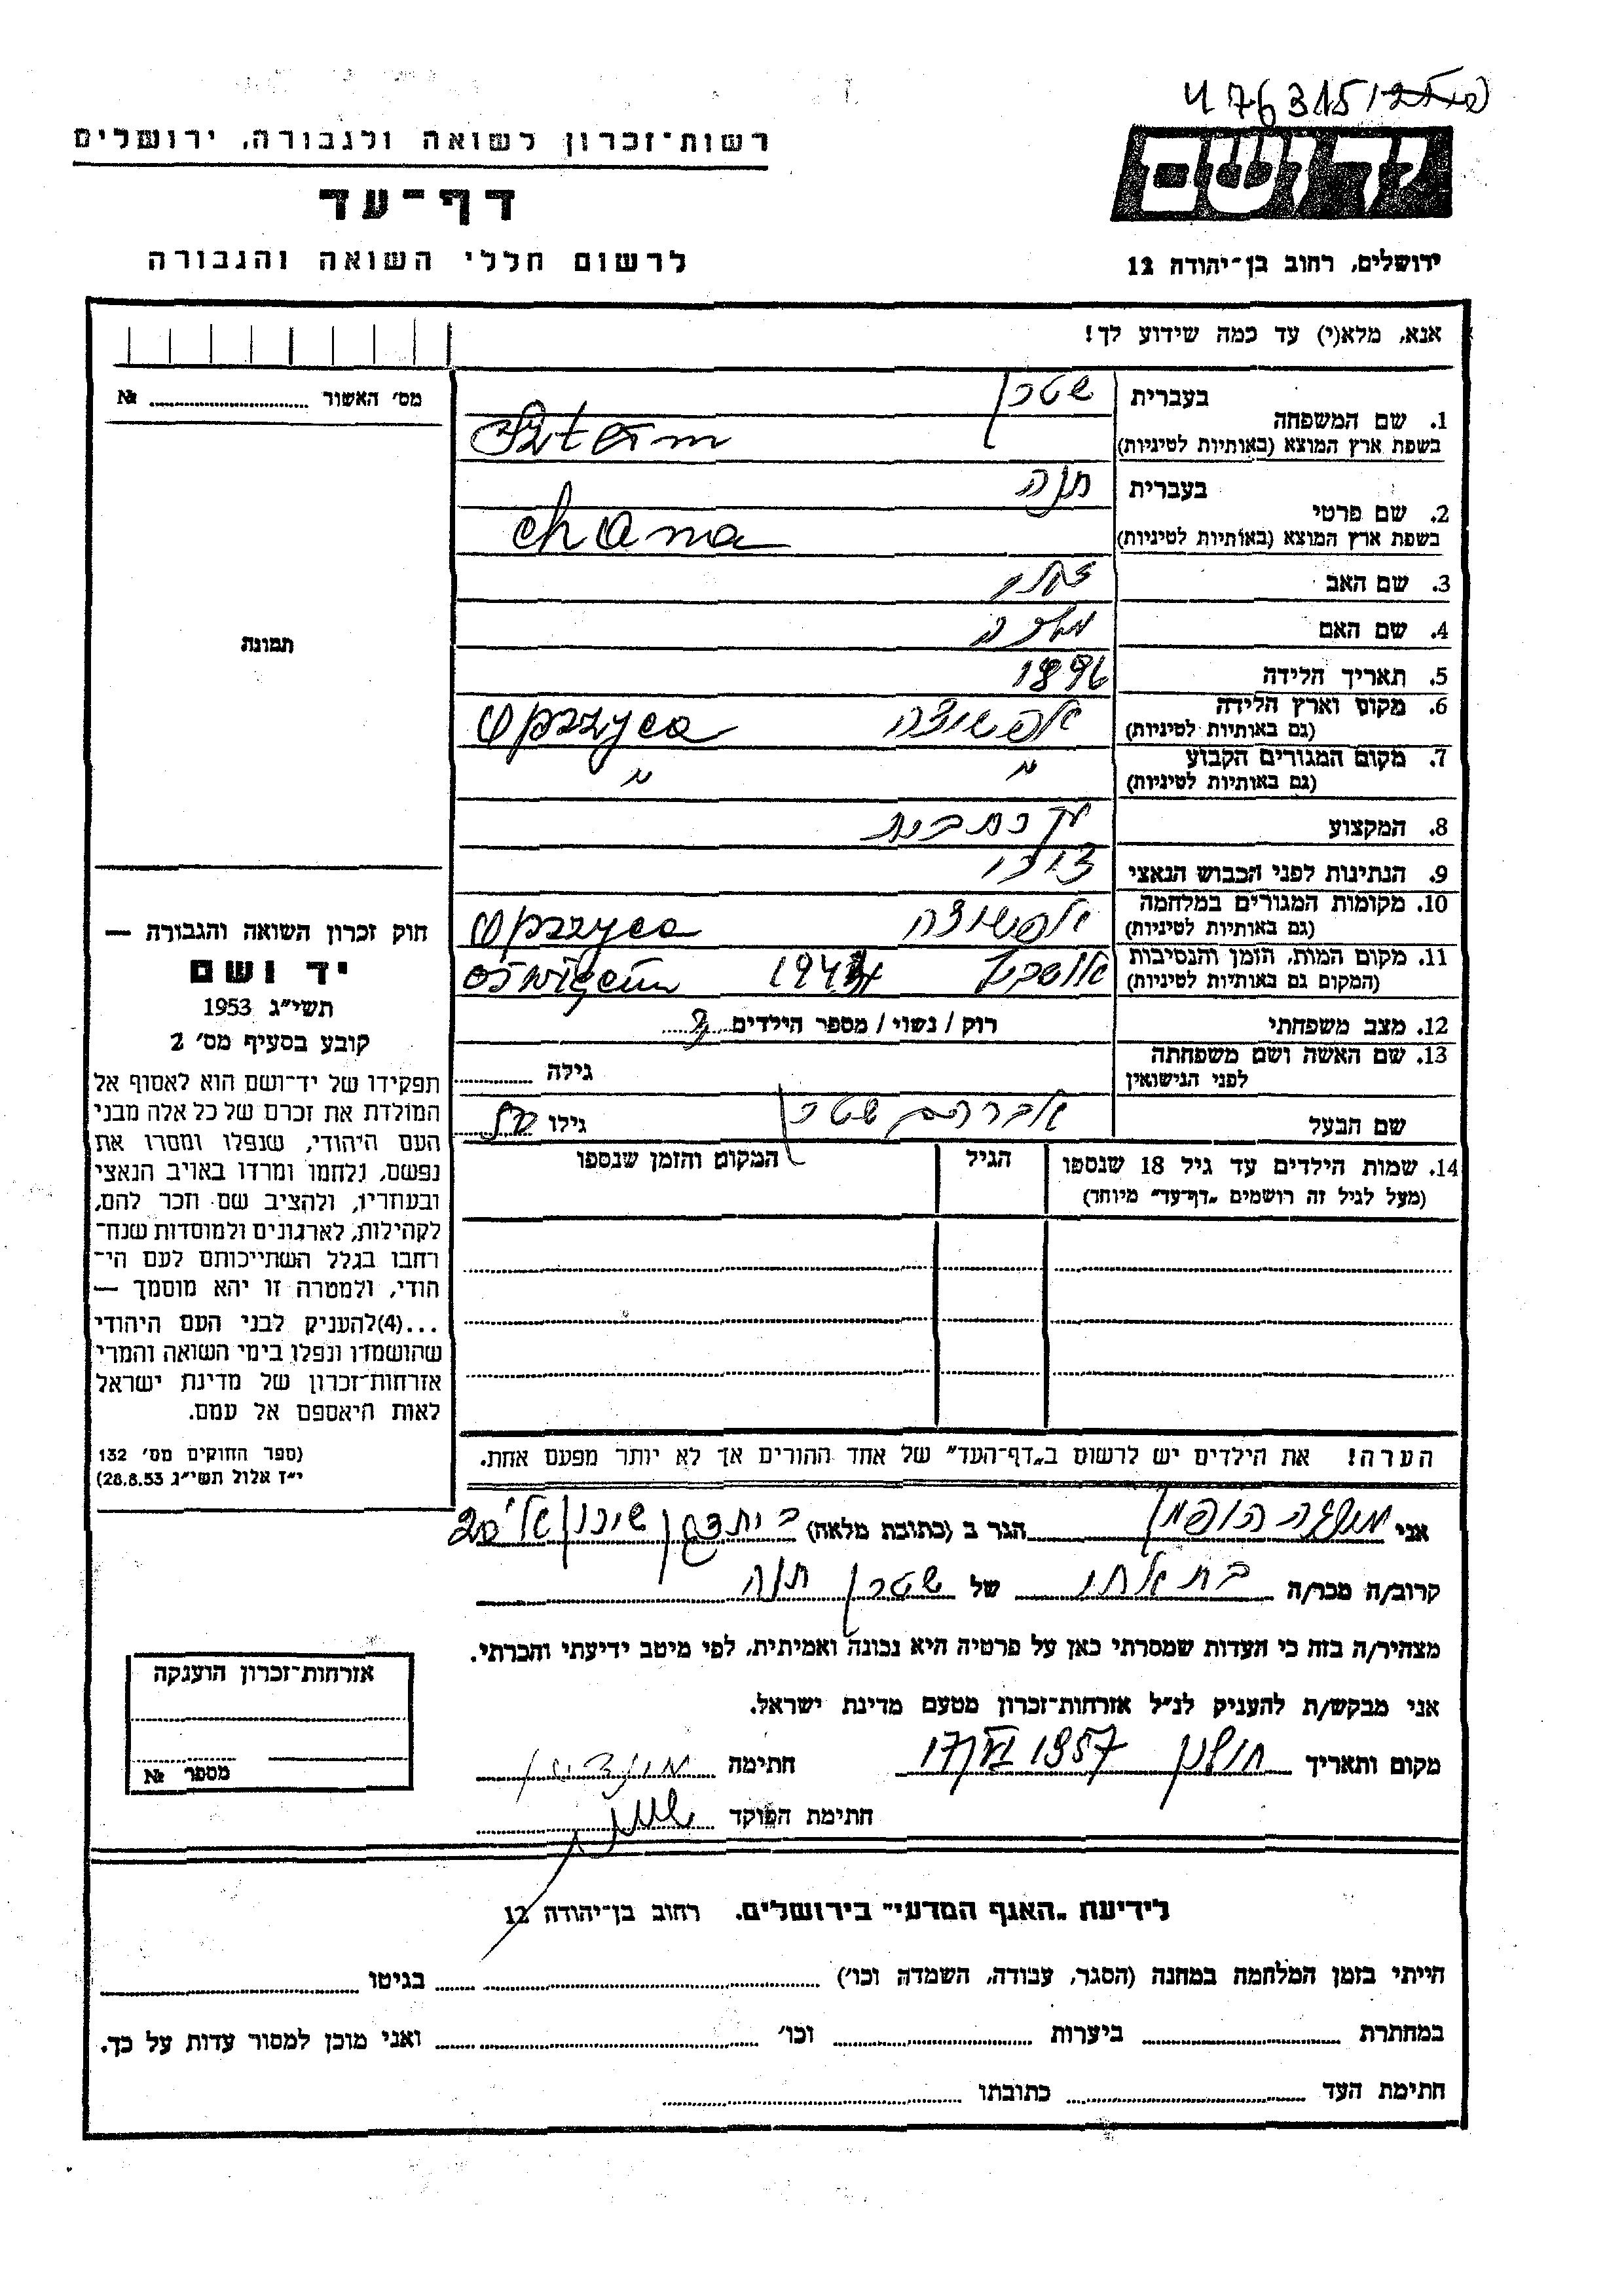 476315/
רשות־זכרון לשואה ולגבורה, ירושלים
יד ושם
דף־עד
לרשום חללי השואה והגבורה
ירושלים, רחוב בן־יהודה 12
אנא, מלא(י) עד כמה שידוע לך!
מס׳ האשור № 
1. שם המשפחה בעברית שטרן
בשפת ארץ המוצא (באותיות לטיניות) Sztern
2. שם פרטי בעברית חנה
בשפת ארץ המוצא (באותיות לטיניות) chana
3. שם האב
4. שם האם
5. תאריך הלידה 1896
6. מקום וארץ הלידה (גם באותיות לטיניות) Opzzyca
7. מקום המגורים הקבוע (גם באותיות לטיניות) " "
8. המקצוע עקרת בית
9. הנתינות לפני הכבוש הנאצי
10. מקומות המגורים במלחמה (גם באותיות לטיניות) Opzzyca
11. מקום המות, הזמן והנסיבות (המקום גם באותיות לטיניות) 194 oświęcim
12. מצב משפחתי רוק / נשוי / מספר הילדים
13. שם האשה ושם משפחתה לפני הנישואין גילה
שם הבעל אברהם שטרן גילו
14. שמות הילדים עד גיל 18 שנספו הגיל המקום והזמן שנספו
(מעל לגיל זה רושמים „דף־עד" מיוחד)
הערה! את הילדים יש לרשום ב„דף־העד" של אחד ההורים אך לא יותר מפעם אחת.
תמונת
חוק זכרון השואה והגבורה —
יד ושם
תשי״ג 1953
קובע בסעיף מס׳ 2
תפקידו של יד־ושם הוא לאסוף אל
המולדת את זכרם של כל אלה מבני
העם היהודי, שנפלו ומסרו את
נפשם, נלחמו ומרדו באויב הנאצי
ובעוזריו, ולהציב שם וזכר להם,
לקהילות, לארגונים ולמוסדות שנח־
רחבו בגלל השתייכותם לעם הי־
הודי, ולמטרה זו יהא מוסמך —
...(4)להעניק לבני העם היהודי
שהושמדו ונפלו בימי השואה והמרי
אזרחות־זכרון של מדינת ישראל
לאות היאספם אל עמם.
(ספר החוקים מס׳ 132
י״ז אלול תשי״ג 28.8.53)
אני הופמן הגר ב (כתובת מלאה) שיכון
קרוב/ה מכר/ה בת אחי של שטרן חנה
מצהיר/ה בזה כי העדות שמסרתי כאן על פרטיה היא נכונה ואמיתית, לפי מיטב ידיעתי והכרתי.
אני מבקש/ת להעניק לנ״ל אזרחות־זכרון מטעם מדינת ישראל.
מקום ותאריך חולון 17/VI 1957 חתימה
חתימת הפוקד
אזרחות־זכרון הוענקה
מספר №
לידיעת „האגף המדעי" בירושלים. רחוב בן־יהודה 12
הייתי בזמן המלחמה במחנה (הסגר, עבודה, השמדה וכו׳) בגיטו
במחתרת ביערות וכו׳ ואני מוכן למסור עדות על כך.
חתימת העד כתובתו